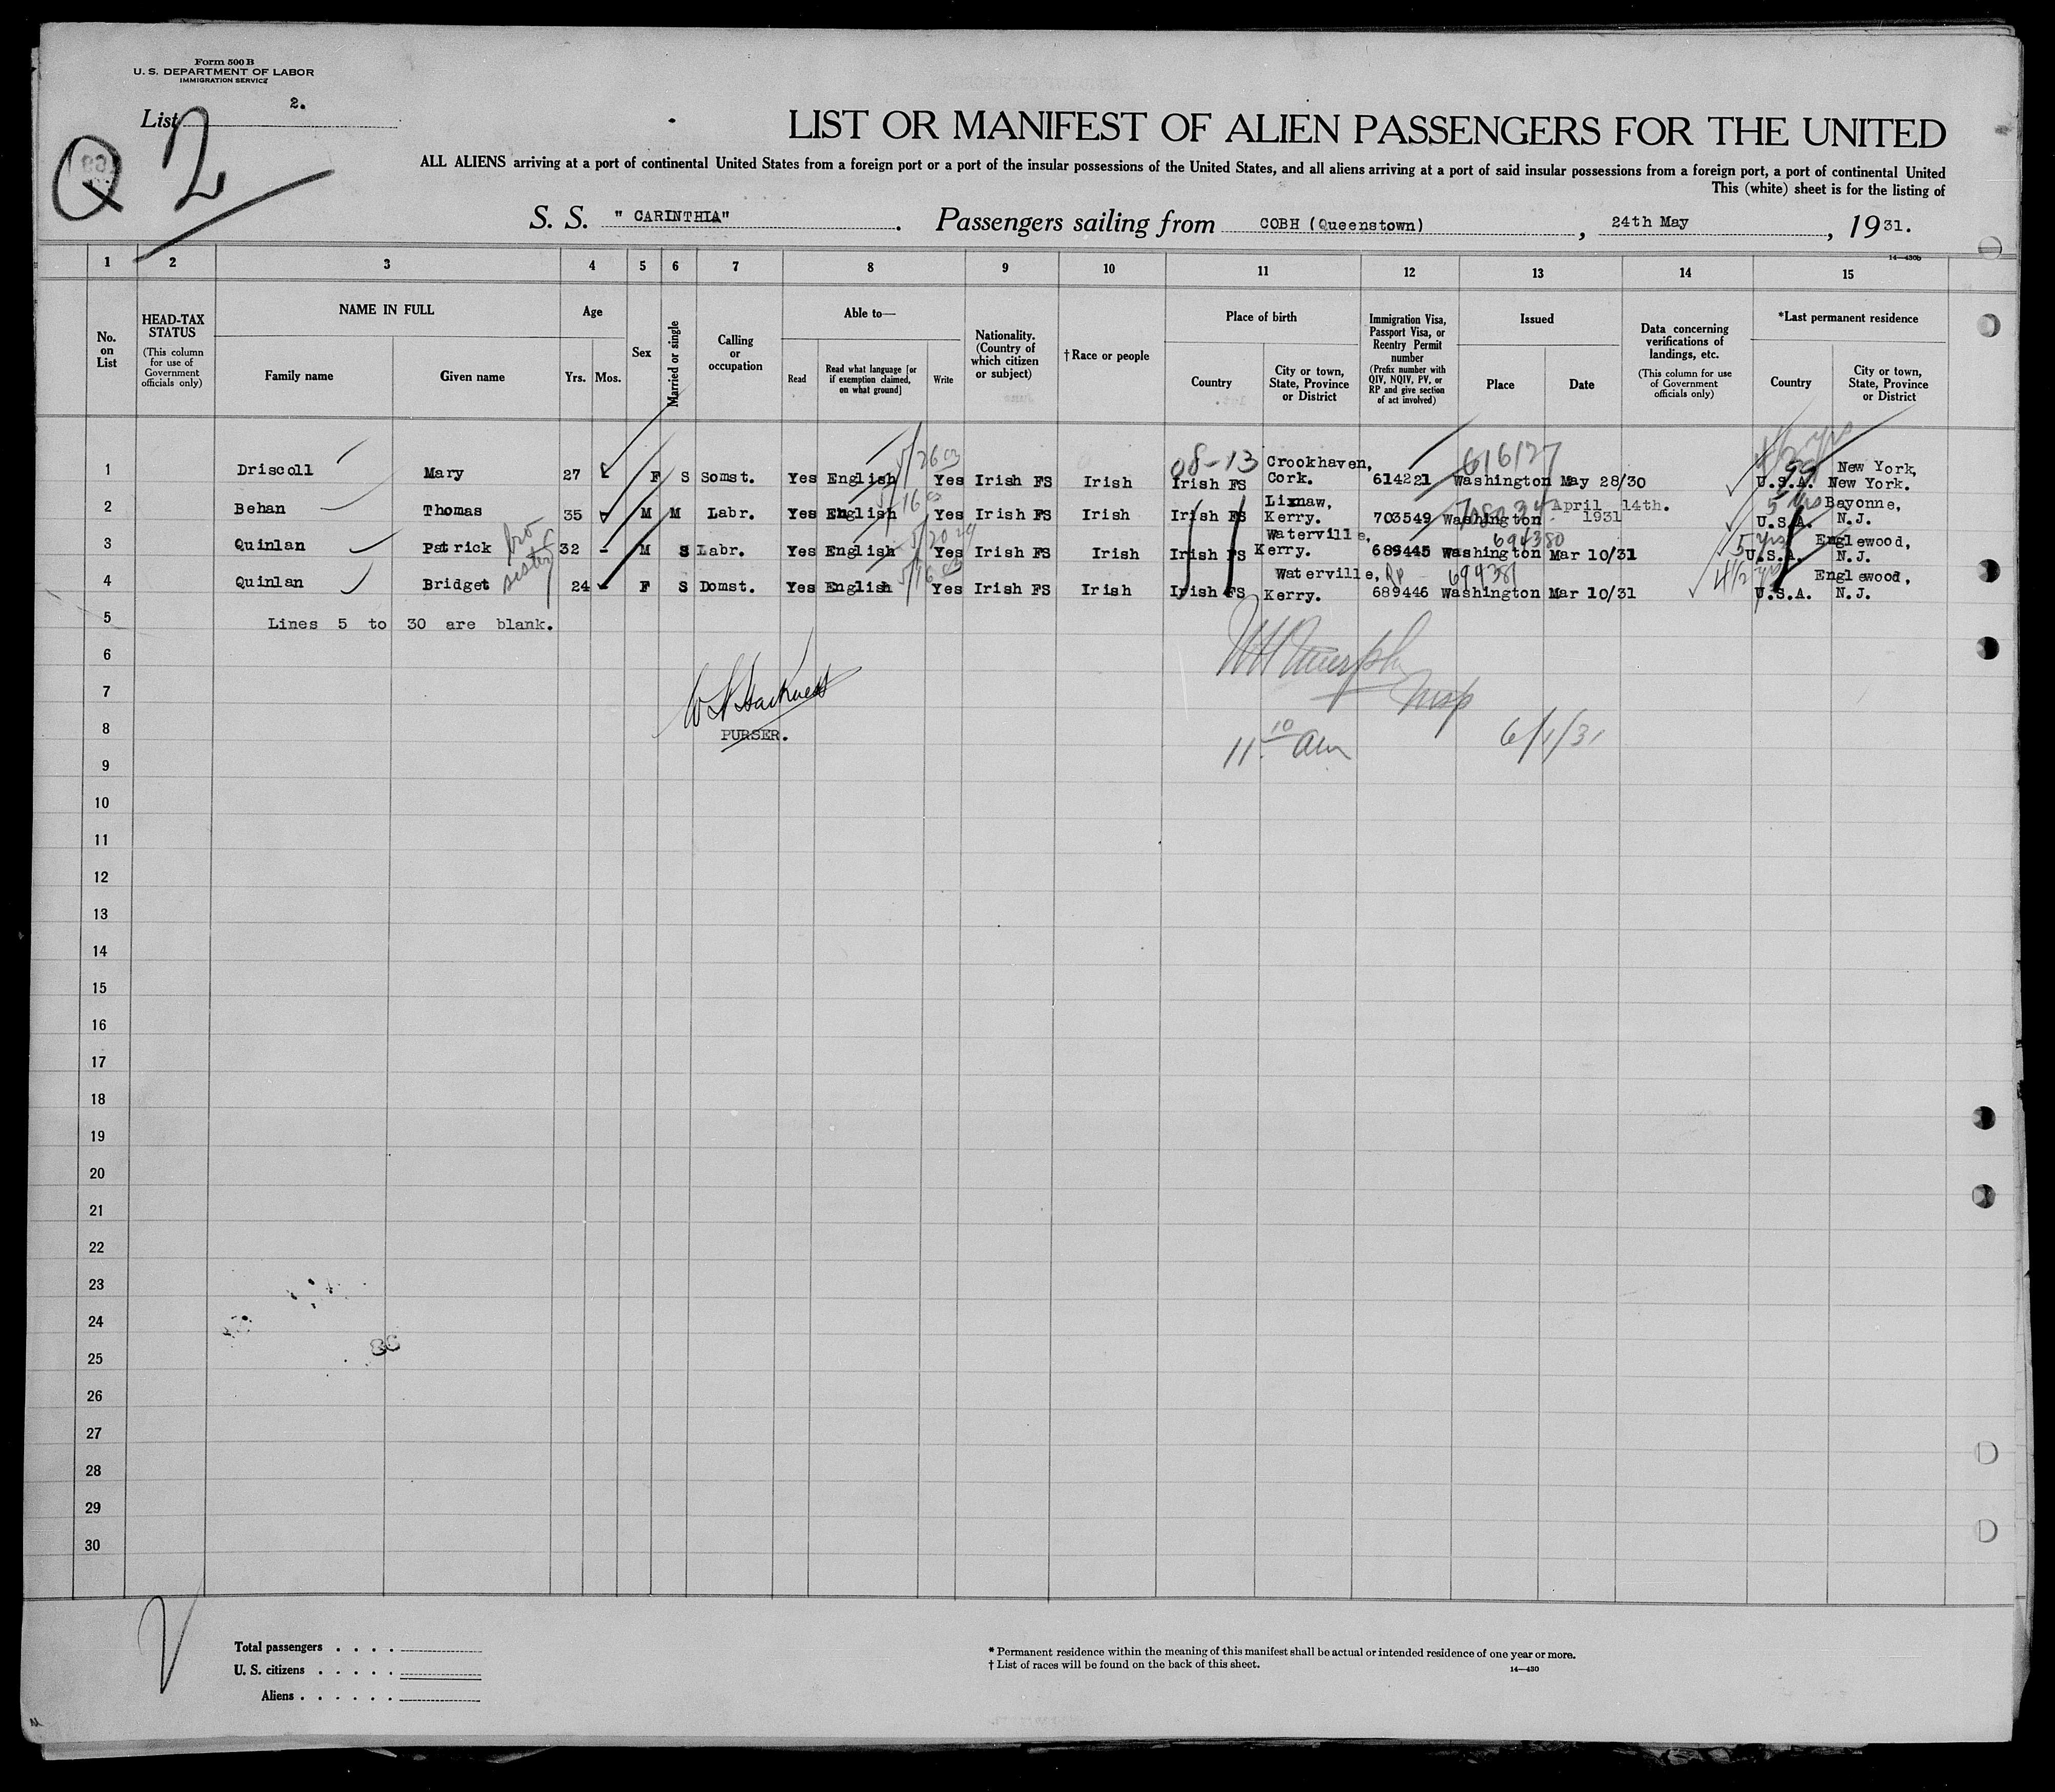 Form 500 B
U. S. DEPARTMENT OF LABOR
IMMIGRATION SERVICE
List 2.
Q 2
LIST OR MANIFEST OF ALIEN PASSENGERS FOR THE UNITED
ALL ALIENS arriving at a port of continental United States from a foreign port or a port of the insular possessions of the United States, and all aliens arriving at a port of said insular possessions from a foreign port, a port of continental United
This (white) sheet is for the listing of
S. S. " CARINTHIA" . Passengers sailing from COBH (Queenstown) , 24th May , 19 31.
14—430b
1 2 3 4 5 6 7 8 9 10 11 12 13 14 15
No. on List
HEAD-TAX STATUS (This column for use of Government officials only)
NAME IN FULL Family name Given name
Age Yrs. Mos.
Sex
Married or single
Calling or occupation
Able to— Read Read what language [or if exemption claimed, on what ground] Write
Nationality. (Country of which citizen or subject)
†Race or people
Place of birth Country City or town, State, Province or District
Immigration Visa, Passport Visa, or Reentry Permit number (Prefix number with QIV, NQIV, PV, or RP and give section of act involved)
Issued Place Date
Data concerning verifications of landings, etc. (This column for use of Government officials only)
*Last permanent residence Country City or town, State, Province or District
1 Driscoll Mary 27 F S Somst. Yes English 5/26 Yes Irish FS Irish 08-13 Irish FS Crookhaven, Cork. 614221 616127 Washington May 28/30 U.S.A. New York, New York.
2 Behan Thomas 35 M M Labr. Yes English 5/16 Yes Irish FS Irish Irish FS Lixnaw, Kerry. 703549 Washington April 14th. 1931 5 yrs U.S.A. Bayonne, N.J.
3 Quinlan Patrick bro 32 M S Labr. Yes English 5/20 Yes Irish FS Irish Irish FS Waterville, Kerry. 689445 694380 Washington Mar 10/31 5 yrs U.S.A. Englewood, N.J.
4 Quinlan Bridget sister 24 F S Domst. Yes English 5/16 Yes Irish FS Irish Irish FS Waterville, Kerry. RP 689446 694381 Washington Mar 10/31 4 1/2 yrs U.S.A. Englewood, N.J.
5 Lines 5 to 30 are blank.
6
7
8
PURSER.
W H Murphy
Insp
11 10 am 6/1/31
9
10
11
12
13
14
15
16
17
18
19
20
21
22
23
24
25
26
27
28
29
30
Total passengers . . . .
U. S. citizens . . . . .
Aliens . . . . . .
* Permanent residence within the meaning of this manifest shall be actual or intended residence of one year or more.
† List of races will be found on the back of this sheet.
14—430